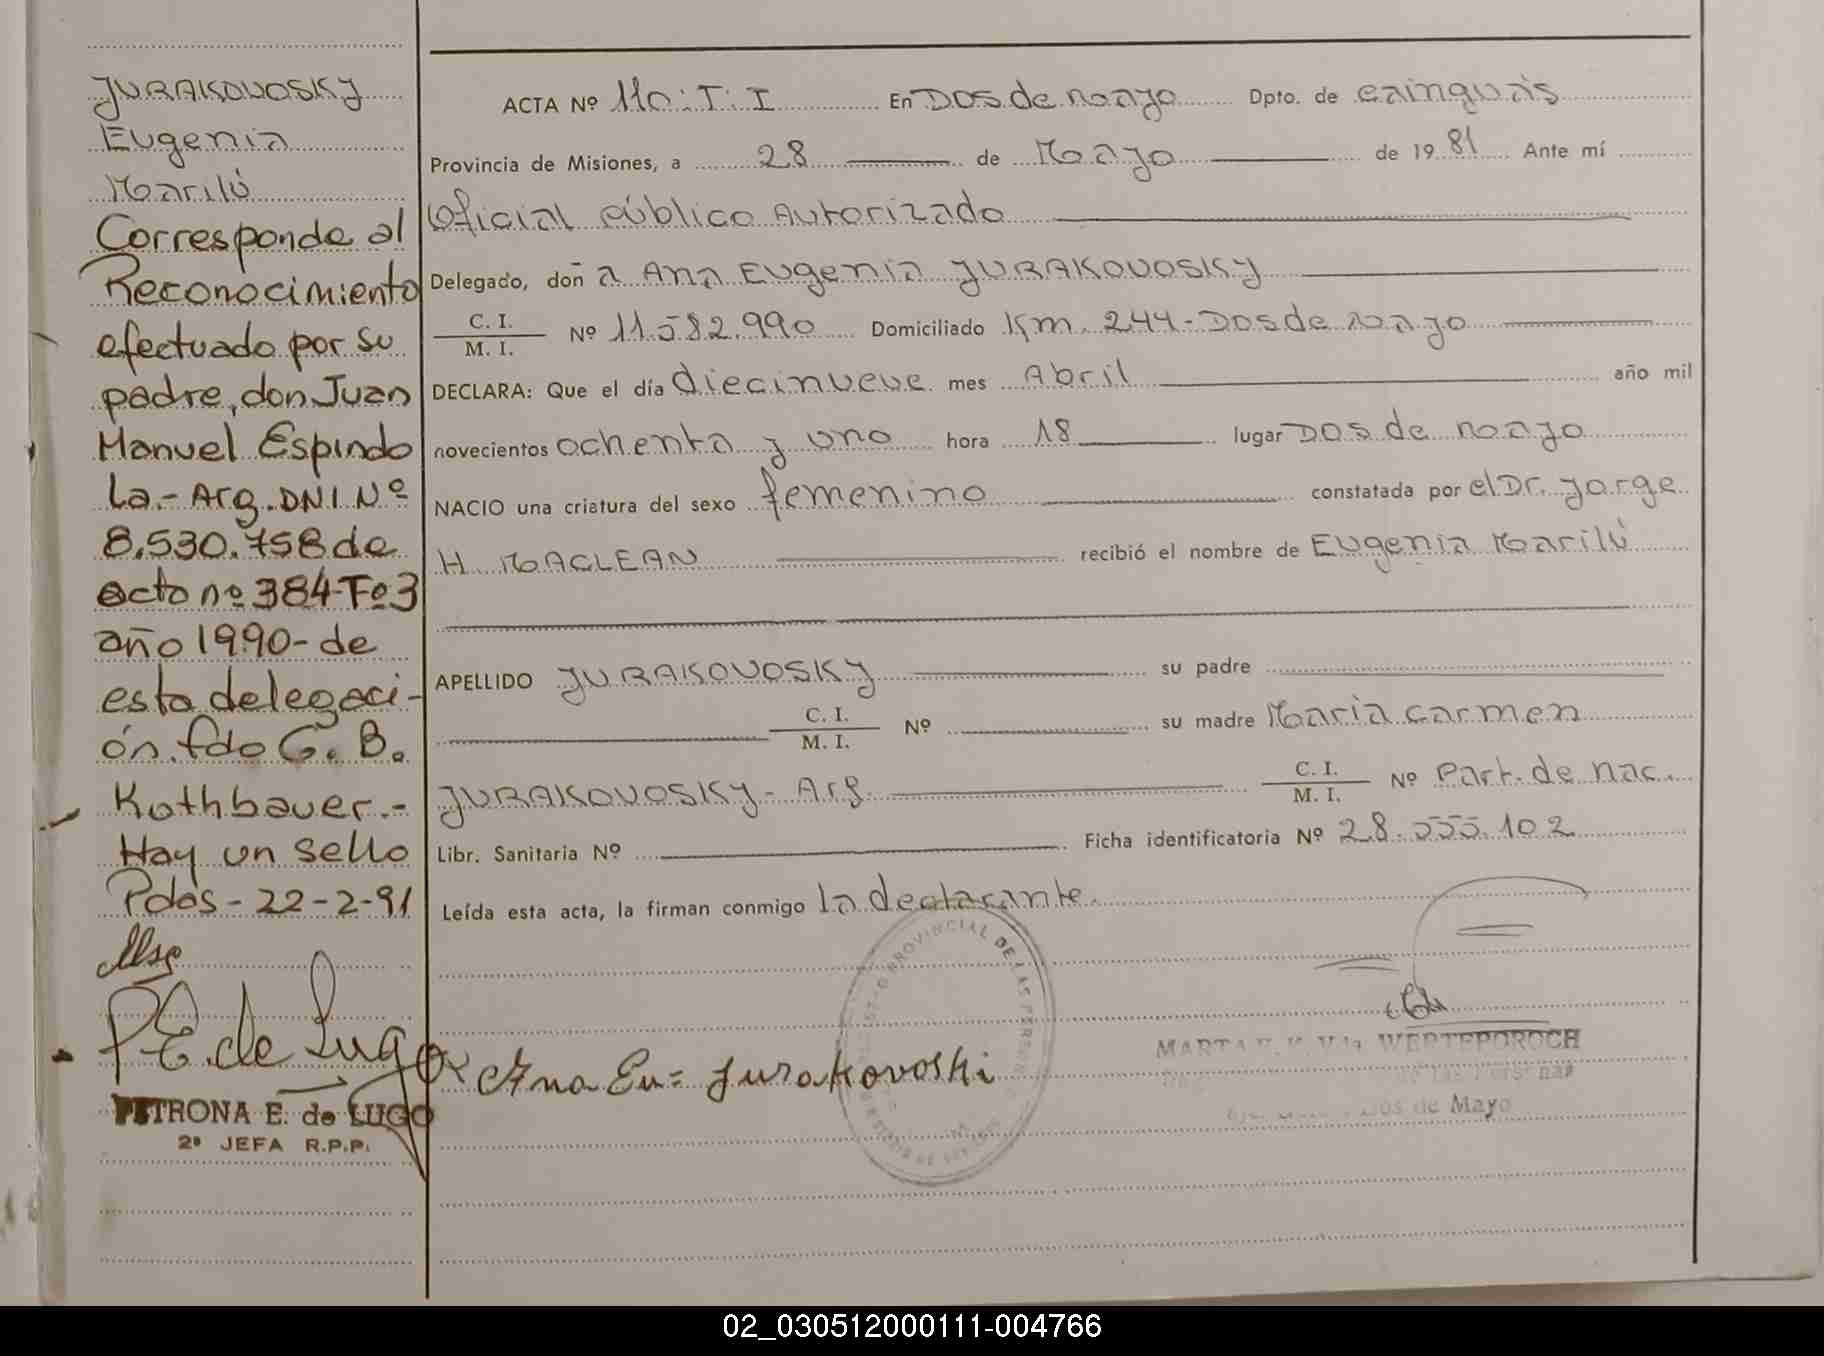 JURAKOVOSKY
Eugenia
Marilú
Corresponde al
Reconocimiento
efectuado por su
padre, don Juan
Manuel Espindo
la.- Arg. DNI Nº
8.530.758 de
acta nº 384-Tº3
año 1990- de
esta delegaci-
ón. fdo G. B.
Kothbauer.-
Hay un sello
Pdas - 22-2-91
P.E. de Lugo
PETRONA E. de LUGO
2ª JEFA R.P.P.
ACTA Nº 110:T:I En DOS de Mayo Dpto. de Cainguás
Provincia de Misiones, a 28 de Mayo de 1981 Ante mí
Oficial Público Autorizado
Delegado, doña Ana Eugenia JURAKOVOSKY
C. I.
M. I. Nº 11.582.990 Domiciliado Km. 244-Dos de Mayo
DECLARA: Que el día diecinueve mes Abril año mil
novecientos ochenta y uno hora 18 lugar Dos de Mayo
NACIO una criatura del sexo femenino constatada por el Dr. Jorge
H MACLEAN recibió el nombre de Eugenia Marilú
APELLIDO JURAKOVOSKY su padre
C. I.
M. I. Nº su madre Maria Carmen
JURAKOVOSKY - Arg. C. I.
M. I. Nº Part. de nac.
Libr. Sanitaria Nº Ficha identificatoria Nº 28.555.102
Leída esta acta, la firman conmigo la declarante.
PROVINCIAL DE LAS PERSONAS
Ana Eu= Jurakovoski
MARTA WERTEPOROCH
de las Personas
Dos de Mayo
02_030512000111-004766